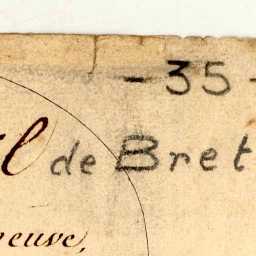 - 35 -
l de Bret
euve,